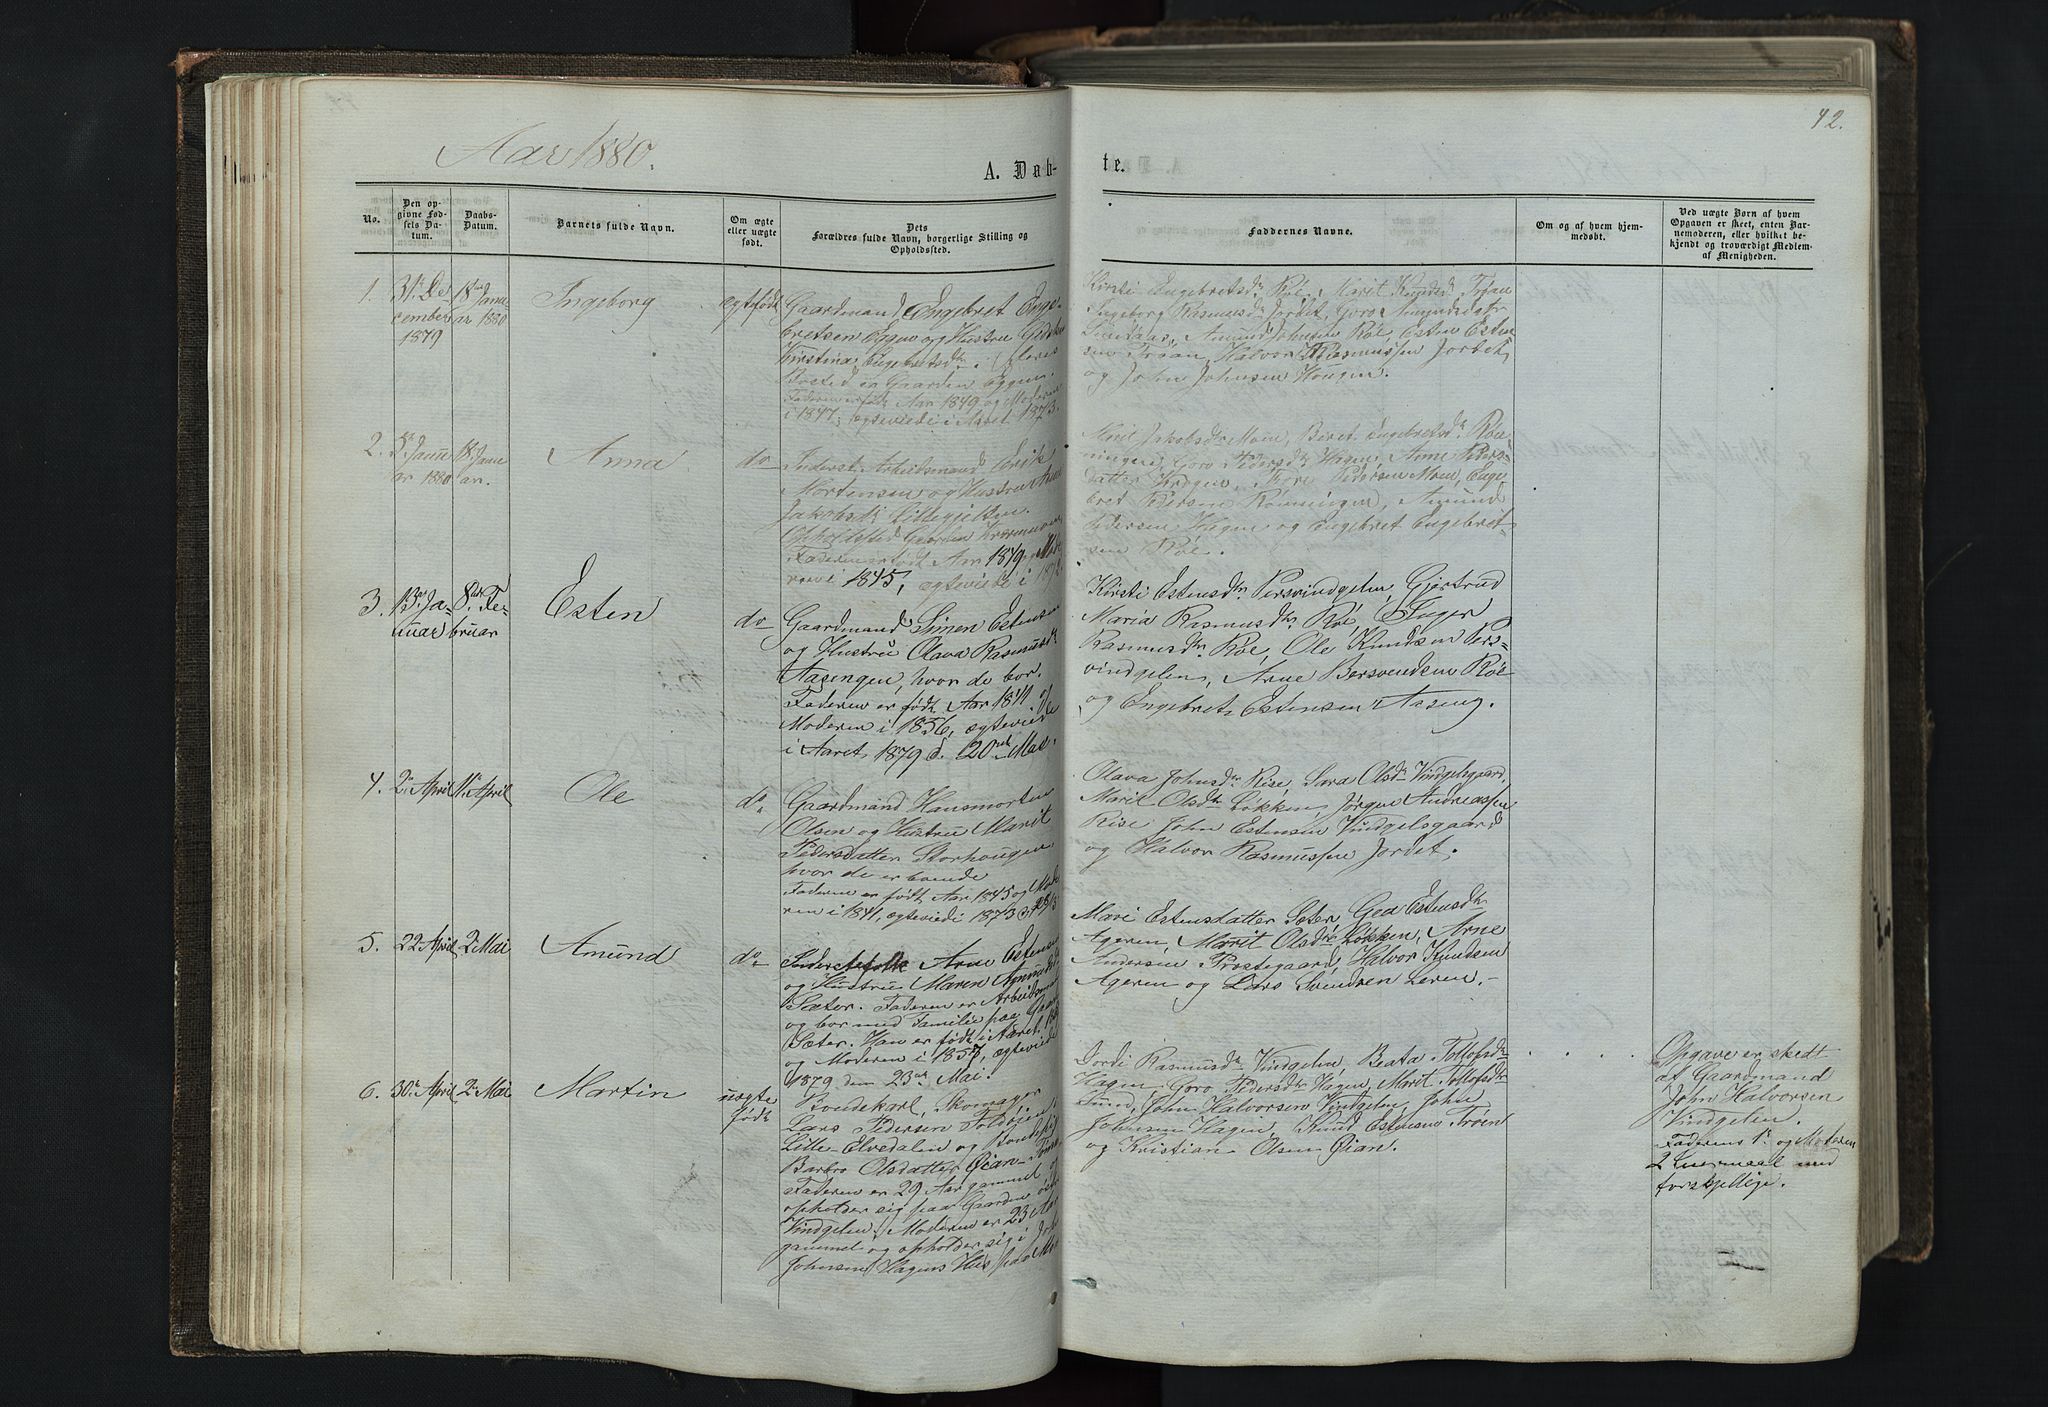 42.
Aar 1880.
A. Dab-
te.
No.
Den op-
givne Fød-
sels Da-
tum.
Daabs-
Datum.
Barnets fulde Navn.
Om ægte
eller uægte
født.
Dets
Forældres fulde Navn, borgerlige Stilling og
Opholdssted.
Faddernes Navne.
Om og af hvem hjem-
medøbt.
Ved uægte Børn af hvem
Opgaven er skeet, enten Bar-
nemoderen, eller hvilket be-
kjendt og troværdigt Medlem
af Menigheden.
1.
31te De-
cember
1879
18de Janu-
ar 1880
Ingeborg
ægtefødt
Gaardmand Engebret Enge-
bretsen Eggen og Hustru
Kirstina Engebretsdr. (deres
Bosted er Gaarden Eggen.
Faderen er født Aar 1849 og Moderen
i 1847, ægteviede i Aaret 1873.
Kirsti Engebretsdr Røe, Marit Knudsdr Trøan
Ingeborg Rasmusdr Jordet, Goro Amundsdatr
Amund Johnsen Røe, Esten Esten-
sen Trøan, Halvor Rasmussen Jordet,
og John Johnsen Hougen.
2.
5te Janu-
ar 1880
18. Janu-
ar.
Anna
do
Inderst, Arbeidsmand Erik
Mortensen og Hustru Anne
Jakobsdr Lillegjelten.
Opholdssted Gaarden
Faderen er født Aar 1849 og Mode-
ren i 1845, ægteviede i
Marit Jakobsdr Moen, Beret Engebretsdr Røn-
ningen, Goro Pedersdr Hagen, Anne Peders-
datter Hagen, Tore Pedersen Moen, Enge-
bret Pedersen Rønningen, Amund
Pedersen Hagen og Engebret Engebret-
sen Røe.
3.
13de Ja-
nuar
8de Fe-
bruar
Esten
do
Gaardmand Simen Estensen
og Hustru Olava Rasmusdr
Aasengen, hvor de bor.
Faderen er født Aar 1841 og
Moderen i 1856, ægteviede
i Aaret 1879 d. 20de Mai.
Kirsti Estensdr. Persvindgelen, Gjertrud
Maria Rasmusdr. Røe, Inger
Rasmusdr. Røe, Ole Knudsen Pers-
vindgelen, Arne Bersvendsen Røe
og Engebret Estensen Aaseng.
4.
2. April
11. April
Ole
do.
Gaardmand Hansmorten
Olsen og Hustru Marit
Pedersdatter Storhougen
hvor de er boende
Faderen er født Aar 1845 og Mode-
ren i 1841, ægteviede i 1873
Olava Johnsdr Rise, Sara Olsdr Vindgelsgaard,
Marit Olsdr Løkken, Jørgen Andreassen
Rise, John Estensen Vindgelsgaard
og Halvor Rasmussen Jordet.
5.
22. April
2. Mai
Amund
do
Inderstfolk Arne Estensen
og Hustru Maren Amundsdr
Sæter. Faderen er Arbeidsmand
og bor med Familie paa Gaarden
Sæter. Han er født i Aaret
og Moderen i 1857, ægteviede
1879 den 23de Mai.
Mari Estensdatter Sæter, Gea Estensdr
Ageren, Marit Olsdr Løkken, Arne
Andersen Prestegaard, Halvor Knudsen
Ageren og Lars Svendsen Leren.
6.
30te April
2. Mai
Martin
uægte
født
Bondekarl, Skomager
Lars Pedersen
Lille-Elvedalen og Bondepige
Barbro Olsdatter Øian
Faderen er 29 Aar gammel og
opholder sig paa Gaarden
Vindgelen, Moderen er 23 Aar
gammel og opholder sig i John
Johnsen Hagens Hus paa
Jordi Rasmusdr. Vindgelen, Beata Tollefsdr
Hagen, Goro Pedersdr Hagen, Marit Tollefsdr
Sund, John Halvorsen Vindgelen, John
Johnsen Hagen, Knud Estensen Trøen
og Kristian Olsen Øian.
Opgave er skedt
af Gaardmand
John Halvorsen
Vindgelen.
Faderens 1. og Moderen
2 Leiermaal med
forskjellige.